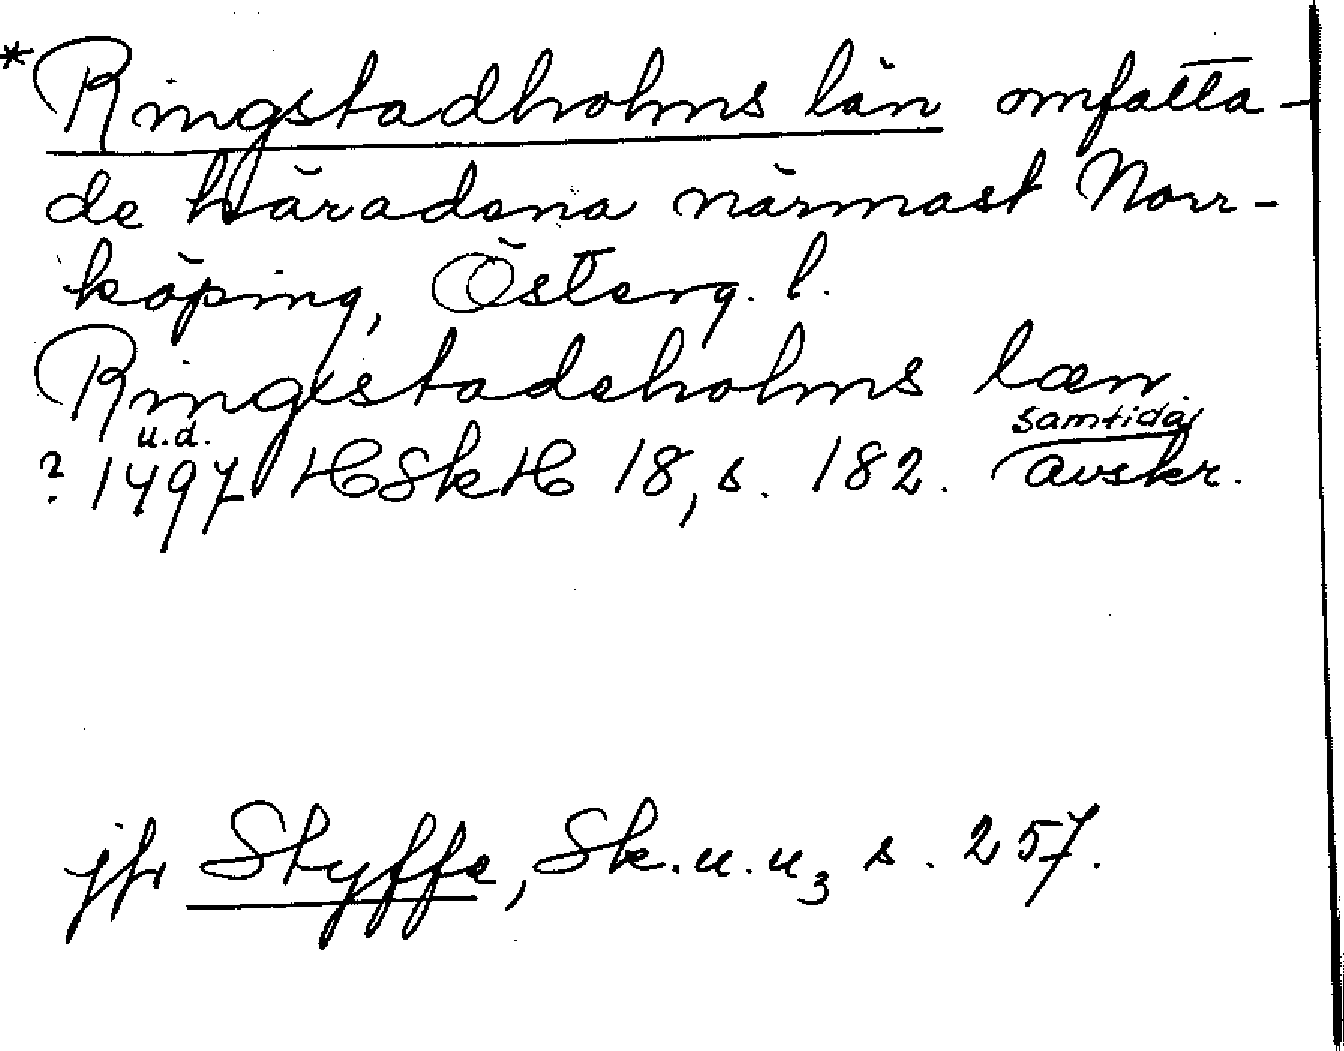 *Ringstadholms län omfatta-
de häradena närmast Norr-
köping, Österg. l.
Ringestadeholms læn
u.d. samtida
? 1497 HSkH 18, s. 182. avskr.
jfr Styffe, Sk.u.u3 s. 257.